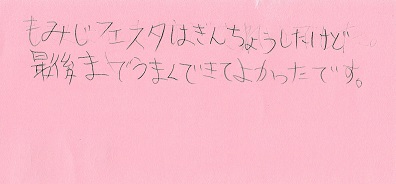 もみじフェスタはきんちょうしたけど
最後までうまくできてよかったです。